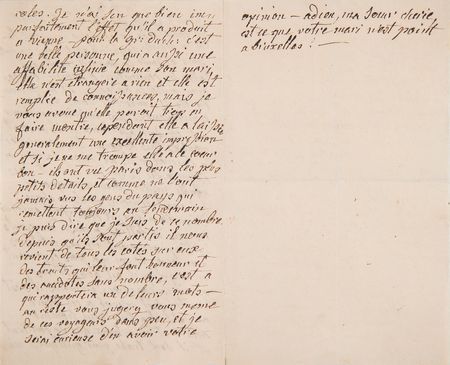 voles. Je n'ai son que bien im
parfaitement l'effet qu'il a produit
a vienne — pour la gr: duch: c'est
une belle personne, qui a aussi une
affabilité infinie comme son mari,
elle n'est etrangere a rien et elle est
remplie de connoissances, mais je
vous avoue qu'elle paroit trop en
faire montre, cependant elle a laissé
generalement une excellente impression
et si je ne me trompe elle a le coeur
bon — ils ont vu paris dans les plus
petits details, et comme ne l'ont
jamais vus les gens du pays qui
remettent toujours au lendemain
je puis dire que je suis de ce nombre.
depuis qu'ils sont partis il nous
revient de tous les cotés sur eux
des traits qui leur font honneur et
des anecdotes sans nombre, c'est a
qui rapportera un de leurs mots —
au reste vous jugerez vous meme
de ces voyageurs dans peu, et je
serai curieuse d'en avoir votre
opinion — adieu, ma soeur cherie
est ce que votre mari n'est point
a bruxelles? —